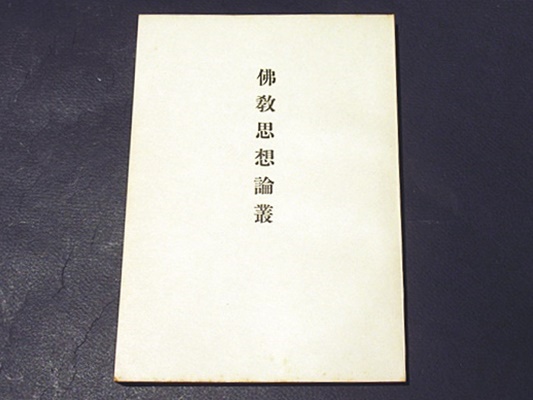 佛教思想論叢